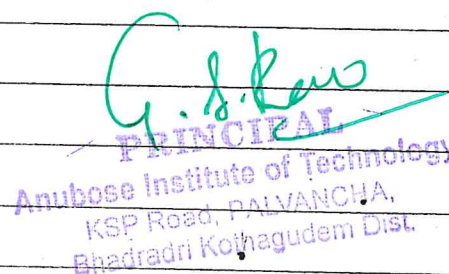 G.S.Rao
PRINCIPAL
Anubose Institute of Technology
KSP Road, PALVANCHA,
Bhadradri Kothagudem Dist.